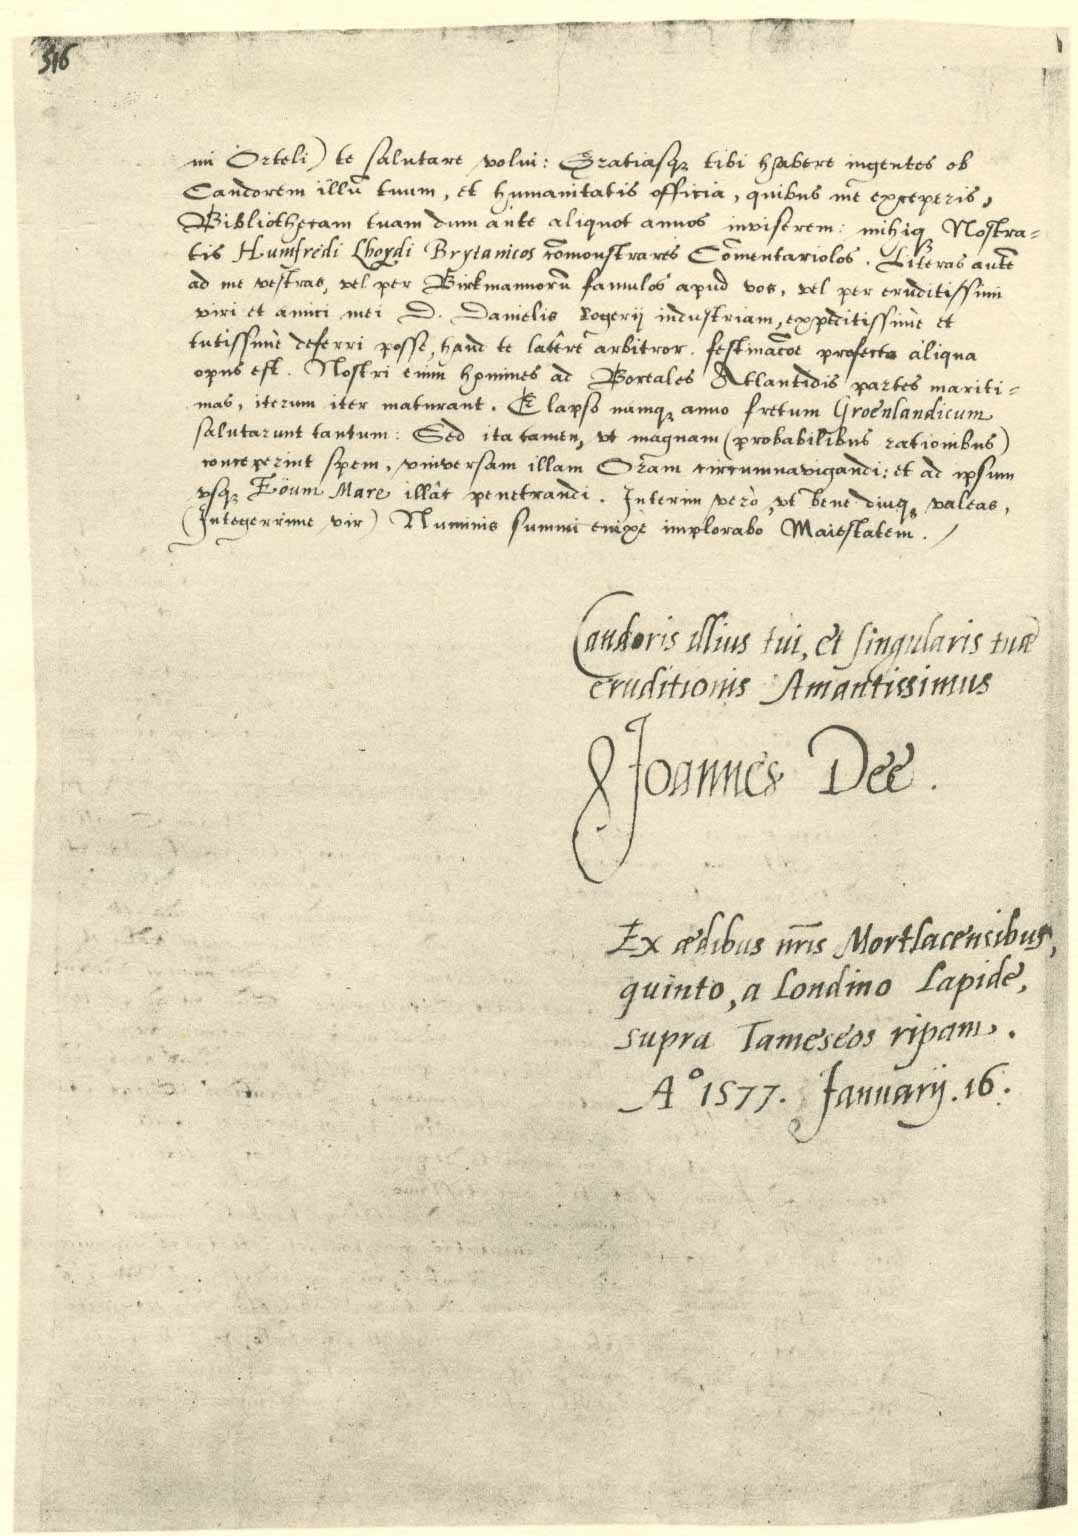 516
mi Orteli) te salutare volui: Gratiasq; tibi habere ingentes ob
Candorem illū tuum, et humanitatis officia, quibus me exceperis,
Bibliothecam tuam dum ante aliquot annos inviserem: mihiq; Nostra-
tis Humfredi Lhoydi Brytanicos cōmonstrares Cōmentariolos. Literas autē
ad me vestras, vel per Birkmannorū famulos apud vos, vel per eruditissimi
viri et amici mei D. Danielis Rogerij industriam, expeditissimè et
tutissimè deferri posse, haud te latere arbitror. festinatōe profecto aliqua
opus est. Nostri enim homines ad Boreales Atlantidis partes mariti-
mas, iterum iter maturant. Elapso namq; anno fretum Groenlandicum
salutarunt tantum: Sed ita tamen, vt magnam (probabilibus rationibus)
conceperint spem, vniversam illam Oram circumnavigandi: et ad ipsum
vsq; Eöum Mare illàc penetrandi. Interim verò, vt bene diuq; valeas,
(Integerrime vir) Numinis summi enixe implorabo Maiestatem.
Candoris illius tui, et singularis tuæ
eruditionis Amantissimus
Joannes Dee.
Ex ædibus nr̄is Mortlacensibus,
quinto, a Londino Lapide,
supra Tameseos ripam.
A° 1577. Januarij. 16.